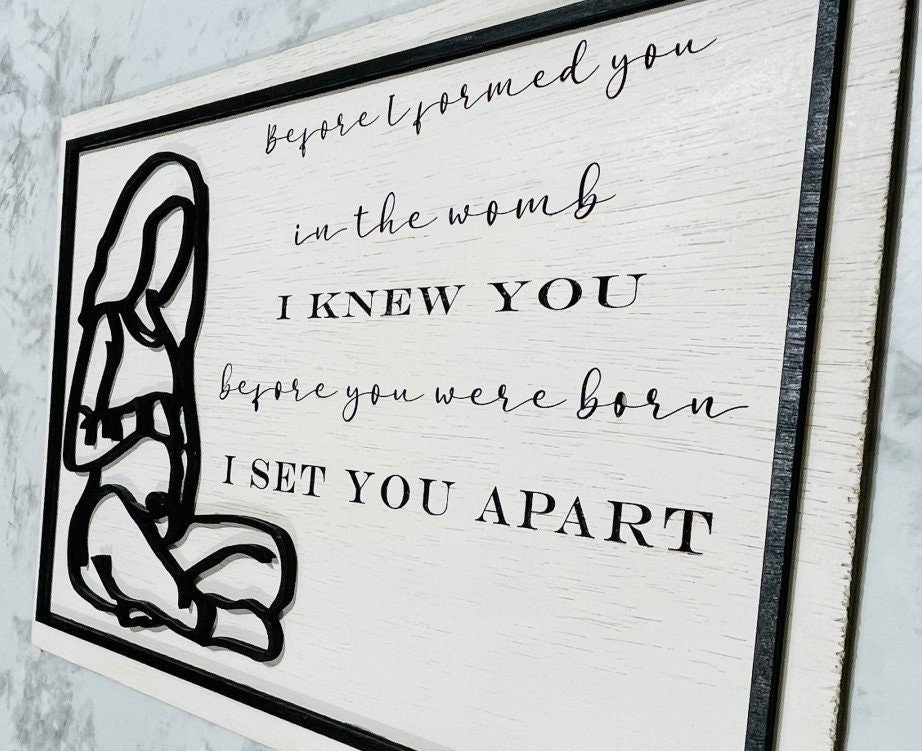 Before I formed you
in the womb
I KNEW YOU
before you were born
I SET YOU APART